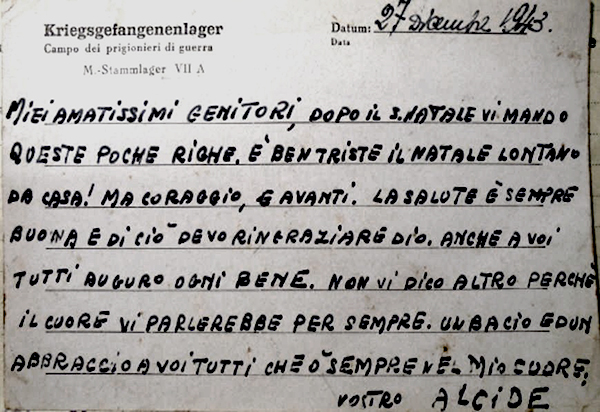 Kriegsgefangenenlager
Campo dei prigionieri di guerra
M.-Stammlager VII A
Datum: 27 Dicembre 1943.
Data
MIEI AMATISSIMI GENITORI, DOPO IL S. NATALE VI MANDO
QUESTE POCHE RIGHE. È BEN TRISTE IL NATALE LONTANO
DA CASA! MA CORAGGIO, E AVANTI. LA SALUTE È SEMPRE
BUONA E DI CIÒ DEVO RINGRAZIARE DIO. ANCHE A VOI
TUTTI AUGURO OGNI BENE. NON VI DICO ALTRO PERCHÈ
IL CUORE VI PARLEREBBE PER SEMPRE. UN BACIO ED UN
ABBRACCIO A VOI TUTTI CHE Ò SEMPRE NEL MIO CUORE,
VOSTRO ALCIDE